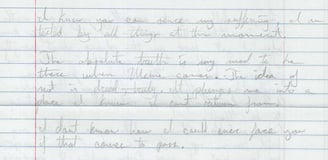 I know you can sense my suffering, I am
tested by all things at this moment.
The absolute truth is my need to be
there when Meme comes. The idea of
not is deadly. It plunges me into a
place I know I can't return from.
I don't know how I could ever face you
if that comes to pass.